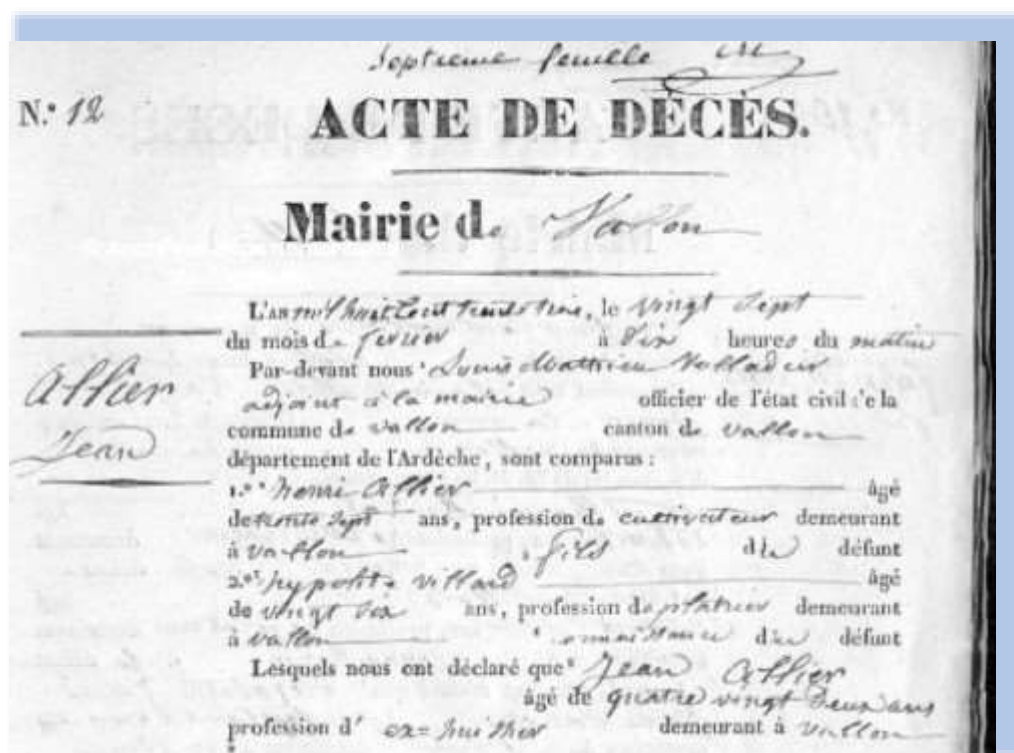 Septieme feuille
N.° 12
ACTE DE DÉCÈS.
Mairie de Vallon
L'an mil huit cent trente trois, le vingt sept
du mois de fevrier à dix heures du matin
Par-devant nous Louis Matthieu Valladier
adjoint à la mairie officier de l'état civil de la
commune de vallon canton de vallon
Allier
Jean
département de l'Ardèche, sont comparus :
1.° henri Allier âgé
de trente sept ans, profession de cultivateur demeurant
à vallon, fils du défunt
2.° hypolite villard âgé
de vingt six ans, profession de platrier demeurant
à vallon connaissance du défunt
Lesquels nous ont déclaré que Jean Allier
âgé de quatre vingt deux ans
profession d' ex=huissier demeurant à vallon